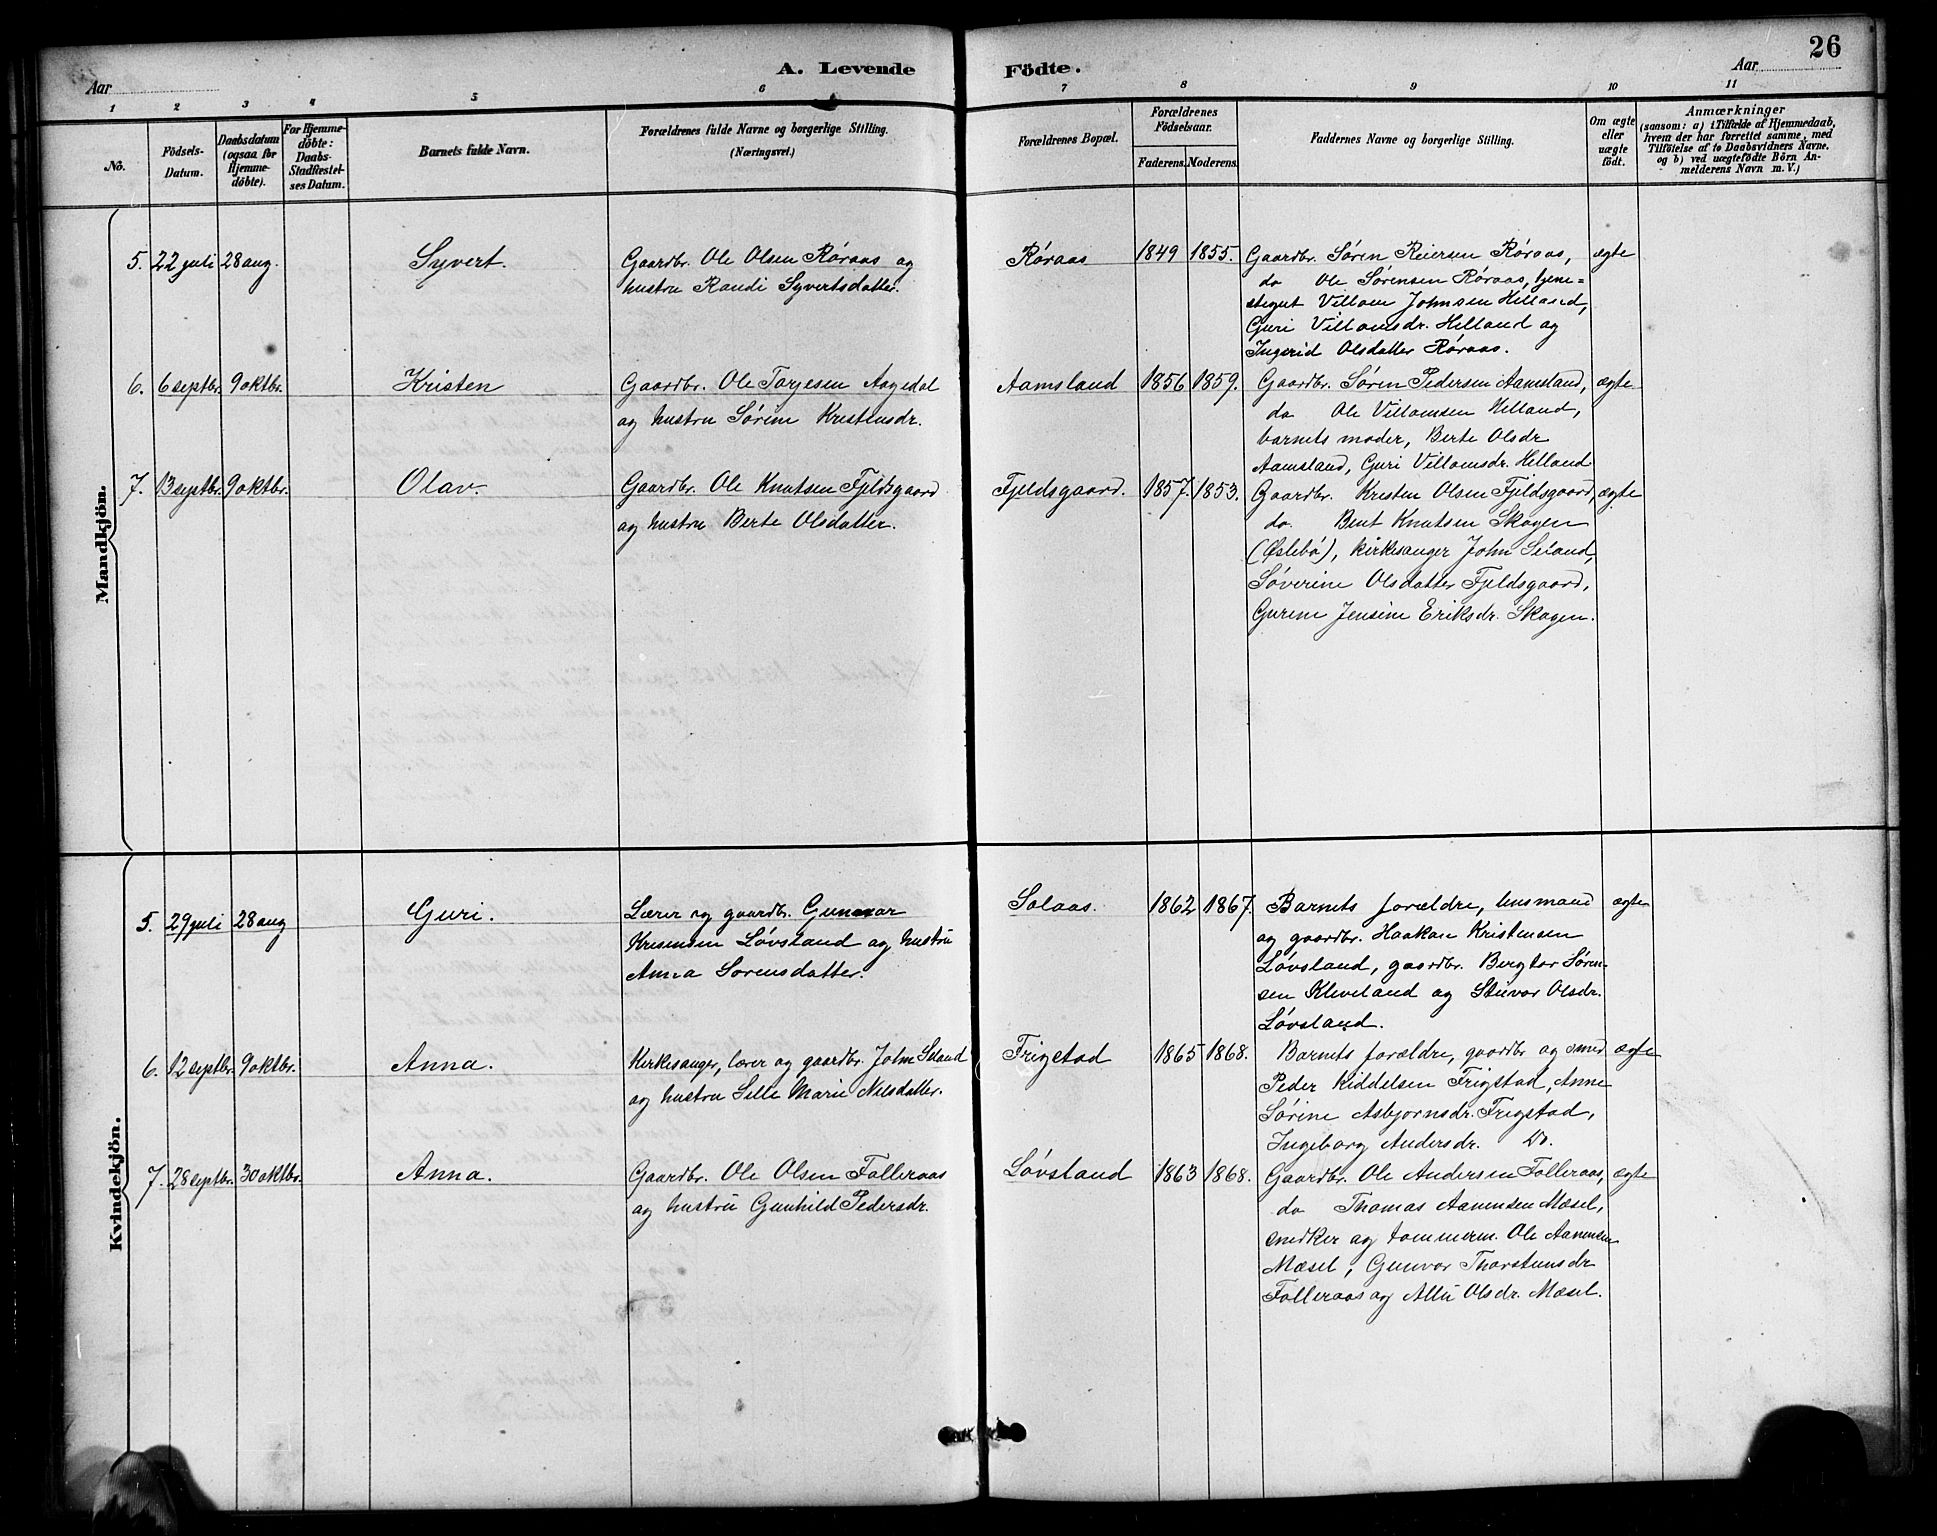 26
A. Levende Födte.
Aar
Aar
1 2 3 4 5 6 7 8 9 10 11
No.
Födsels-Datum.
Daabsdatum (ogsaa for Hjemme-döbte).
For Hjemme-döbte: Daabs-Stadfæstel-ses Datum.
Barnets fulde Navn.
Forældrenes fulde Navne og borgerlige Stilling. (Næringsvei.)
Forældrenes Bopæl.
Forældrenes Födselsaar.
Faderens. Moderens.
Faddernes Navne og borgerlige Stilling.
Om ægte eller uægte födt.
Anmærkninger
(sansom: a) i Tilfælde af Hjemmedaab,
hvem der har forrettet samme, med
Tilföielse af to Daabsvidners Navne.
og b) ved uægtefödte Börn An-
melderens Navn m. V.)
Mandkjön.
5. 22 juli 28 aug. Syvert. Gaardbr. Ole Olsen Røraas og Røraas 1849 1855. Gaardbr. Søren Reiersen Røraas, ægte
hustru Randi Syvertsdatter. do Ole Sørensen Røraas, tjene=
stegut Villom Johnsen Helland,
Guri Villomsdr. Helland og
Ingerid Olsdatter Røraas.
6. 6 septbr. 9 oktbr. Kristen Gaardbr. Ole Torjesen Aagedal Aamsland 1856 1859. Gaardbr. Søren Pedersen Aamsland, ægte
og hustru Sørine Kristensdr. do Ole Villomsen Helland,
barnets moder, Berte Olsdr
Aamsland, Guri Villomsdr. Helland
7. 13 septbr. 9 oktbr. Olav. Gaardbr. Ole Knutsen Fjeldsgaard Fjeldsgaard. 1857. 1853. Gaardbr. Kristen Olsen Fjeldsgaard, ægte
og hustru Berte Olsdatter. do. Bent Knutsen Skogen
(Øslebø), kirkesanger John Seland,
Søverine Olsdatter Fjeldsgaard,
Gurine Jensine Eriksdr. Skogen.
Kvindekjön.
5. 29 juli 28 aug Guri. Lærer og gaardbr. Gunnar Solaas. 1862 1867. Barnets forældre, lensmand ægte
Kristensen Løvsland og hustru og gaardbr. Haakon Kristensen
Anna Sorensdatter. Løvsland, gaardbr. Bergtor Søren-
sen Kleveland og Stuvor Olsdr.
Løvsland.
6. 12 septbr. 9 oktbr. Anna. Kirkesanger, lærer og gaardbr. John Seland Frigstad 1865 1868. Barnets forældre, gaardbr og smed ægte
og hustru Sille Marie Nilsdatter. Peder Kiddelsen Frigstad, Anne
Sørine Asbjørnsdr. Frigstad,
Ingeborg Andersdr. Do.
7. 28 septbr. 30 oktbr. Anna. Gaardbr. Ole Olsen Folleraas Løvsland 1863 1868. Gaardbr. Ole Andersen Folleraas, ægte
og hustru Gunhild Pedersdr. do Thomas Aanensen Mæsel,
snedker og tømmerm. Ole Aanensen
Mæsel, Gunvor Thorstensdr
Folleraas og Alli Olsdr. Mæsel.